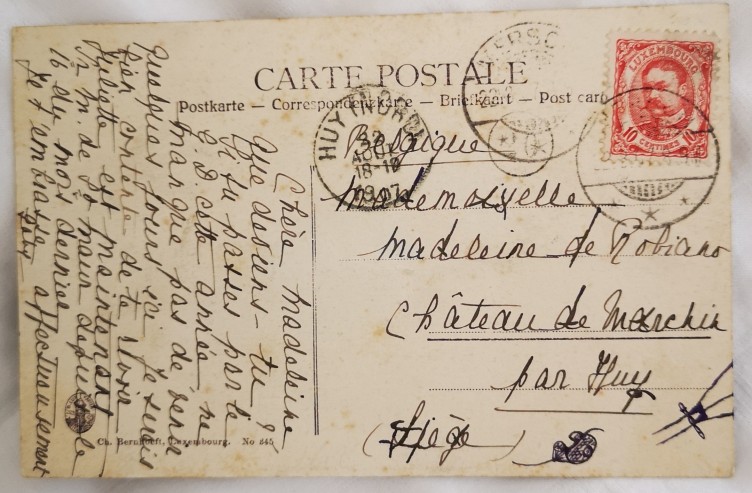 CARTE POSTALE
Postkarte — Correspondenzkarte — Briefkaart — Post card
LUXEMBOURG
10 CENTIMES 10
HUY (NORD)
22
AOUT
18-19
1907
Belgique
Mademoiselle
Madeleine de Robiano
Château de Marchin
par Huy
(Liège)
Chère Madeleine
Que deviens-tu?
Si tu passes par le
G. D. cette année ne
manque pas de venir
quelques jours ici. Je serais
bien contente de te revoir
Juliette est maintenant
de St Maur depuis le
16 du mois dernier
Je t'embrasse affectueusement
Ch. Bernhoeft, Luxembourg. No 545